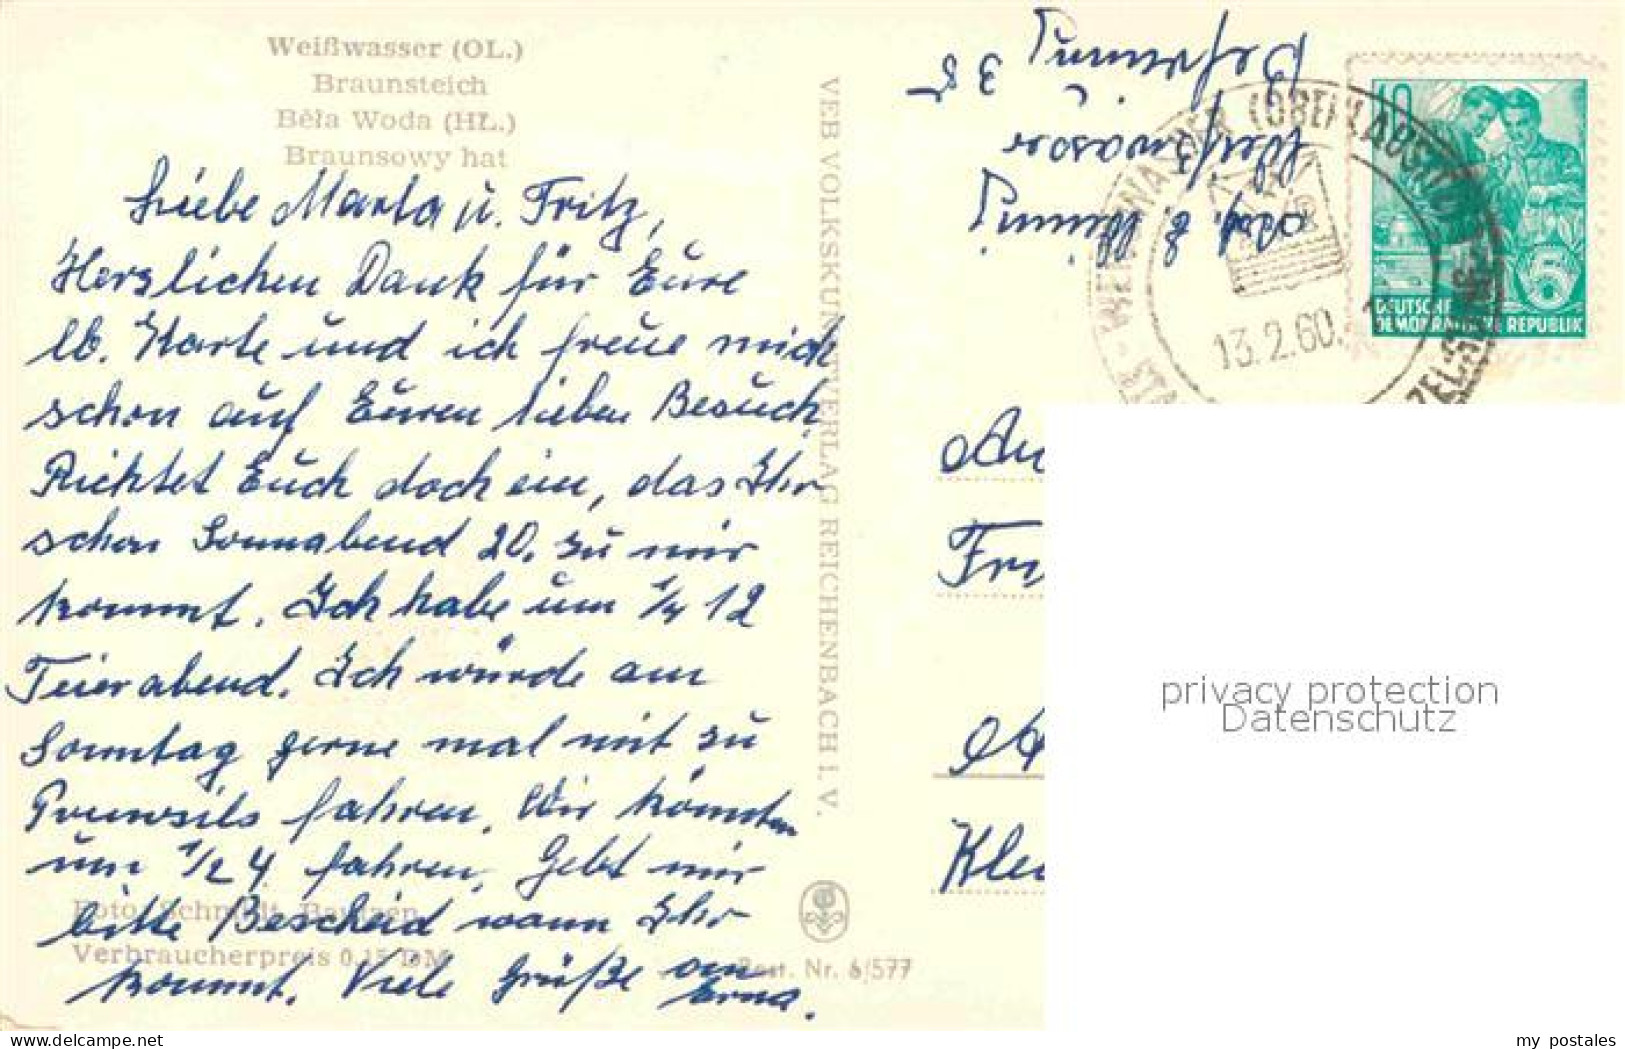 Weißwasser (OL.)
Braunsteich
Běła Woda (HŁ.)
Braunsowy hat
Liebe Marta u. Fritz,
Herzlichen Dank für Eure
lb. Karte und ich freue mich
schon auf Euren lieben Besuch.
Richtet Euch doch ein, das Ihr
schon Sonnabend 20. zu mir
kommt. Ich habe um 1/4 12
Feierabend. Ich würde am
Sonntag gerne mal mit zu
fahren. Wir könnten
um 1/2 4 fahren. Gebt mir
bitte Bescheid wann Ihr
kommt. Viele Grüße
Erna.
Foto: Schmidt, Bautzen
Verbraucherpreis 0,15 DM
Best. Nr. 6/577
VEB VOLKSKUNSTVERLAG REICHENBACH I. V.
Abs.
Weißwasser
WEISSWASSER (OBERLAUSITZ)
13.2.60.
10
5
DEUTSCHE
DEMOKRATISCHE REPUBLIK
An
Fri
Kle
privacy protection
Datenschutz
www.delcampe.net
my postales